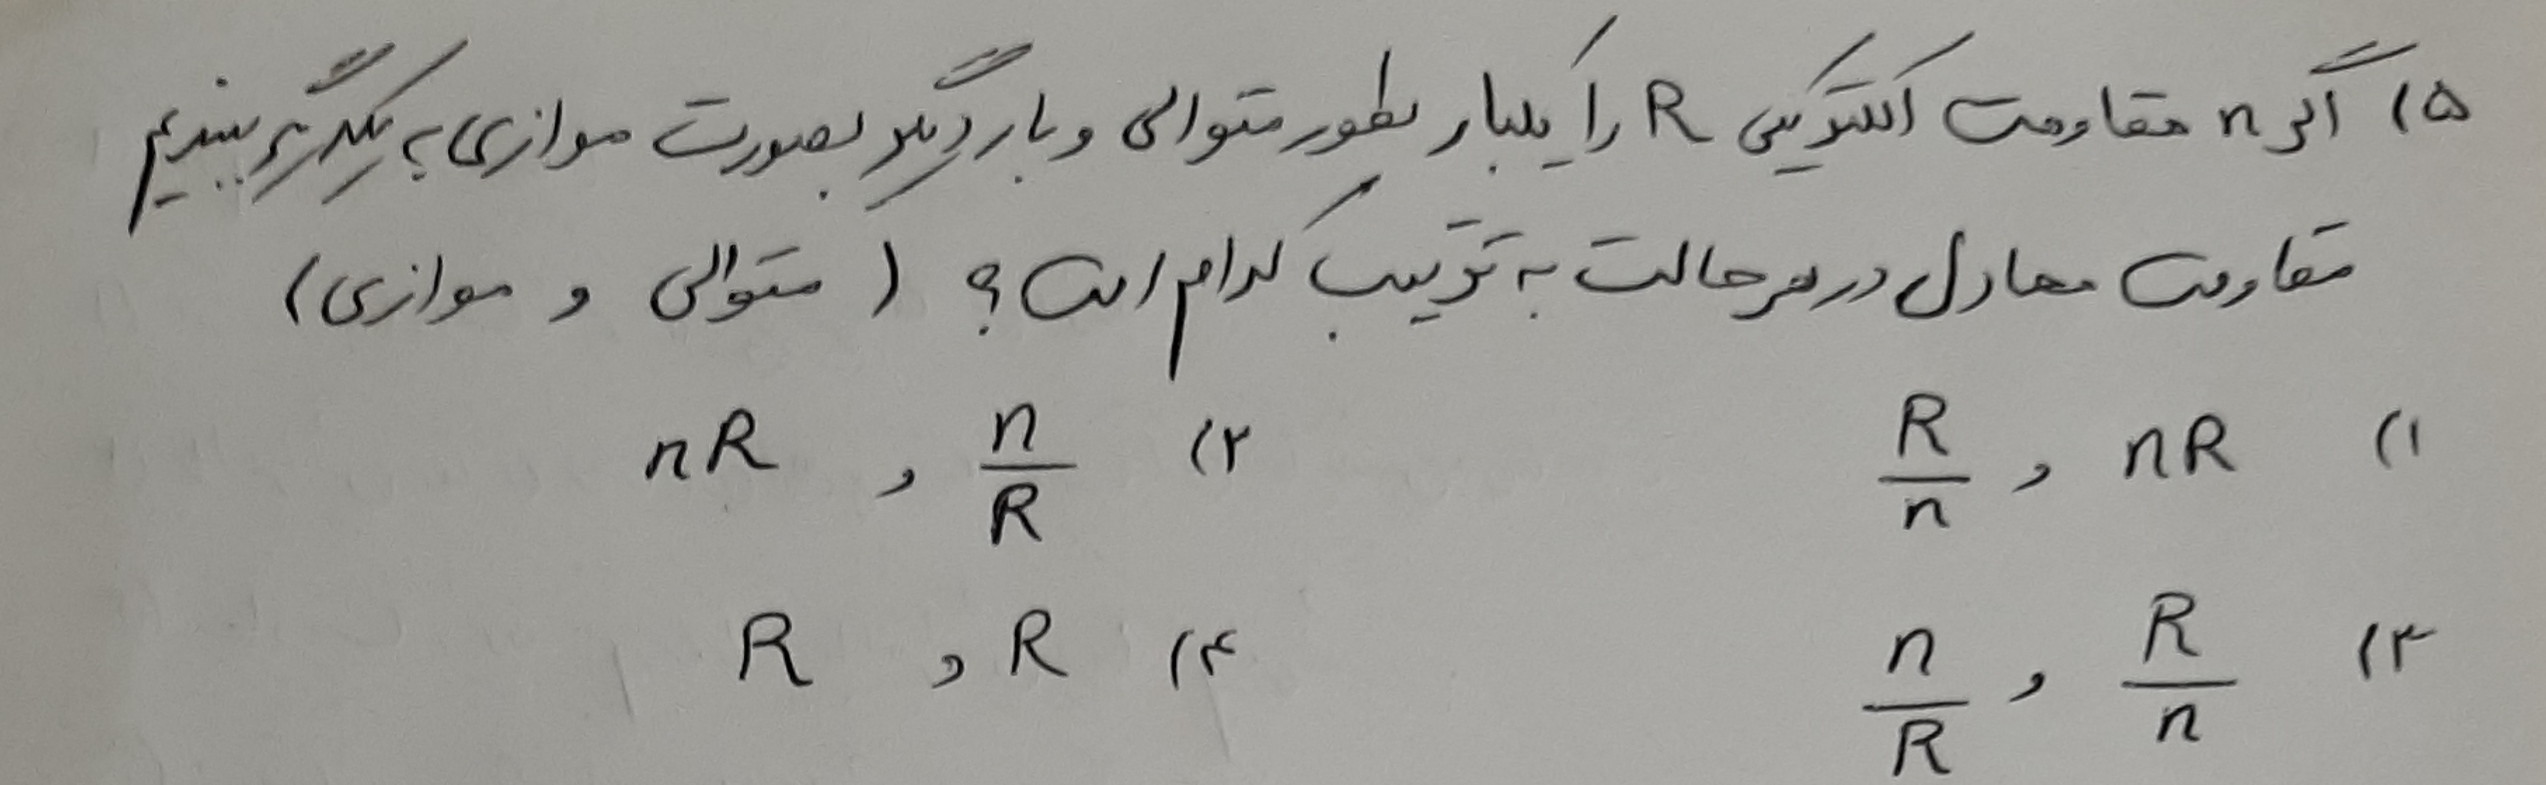 ۵) اگر n مقاومت الکتریکی R را یکبار بطور متوالی و بار دیگر بصورت موازی به یکدیگر ببندیم
مقاومت معادل در هر حالت به ترتیب کدام است ؟ ( متوالی و موازی )
۱) nR و R/n ۲) n/R و nR
۳) R/n و n/R ۴) R و R